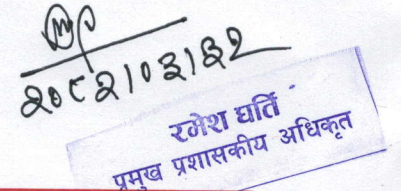 २०८२।०३।३२
रमेश घर्ति
प्रमुख प्रशासकीय अधिकृत